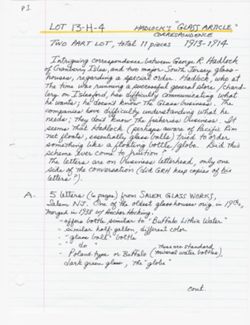 P1
LOT 13-H-4 HADLOCK'S "GLASS ARTICLE"
CORRESPONDENCE
TWO PART LOT, total 11 pieces 1913-1914
Intriguing correspondence between George R. Hadlock
of Cranberry Isles, and two major South Jersey glass-
houses, regarding a special order. Hadlock, who at
the time was running a successful general store/chand-
lery on Islesford, has difficulty communicating what
he wants; he doesn't know the Glass business. The
companies have difficulty understanding what he
needs; they don't know the fisheries business. It
seems that Hadlock (perhaps aware of Pacific Rim
net floats, essentially glass balls) tried to order
something like a floating bottle/globe. Did this
scheme ever come to fruition?
The letters are on business letterhead, only one
side of the conversation (did GRH keep copies of his
letters?).
A. 5 letters (6 pages) from SALEM GLASS WORKS,
Salem NJ. One of the oldest glasshouses orig. in 19thc,
merged in 1938 w/ Anchor Hocking.
- offers bottle similar to "Buffalo Lithia Water"
- similar half gallon, different color
- "glass ball" bottle
- " do " these are standard
- Poland type or Buffalo (mineral water bottles),
dark green glass, the "globe"
cont.